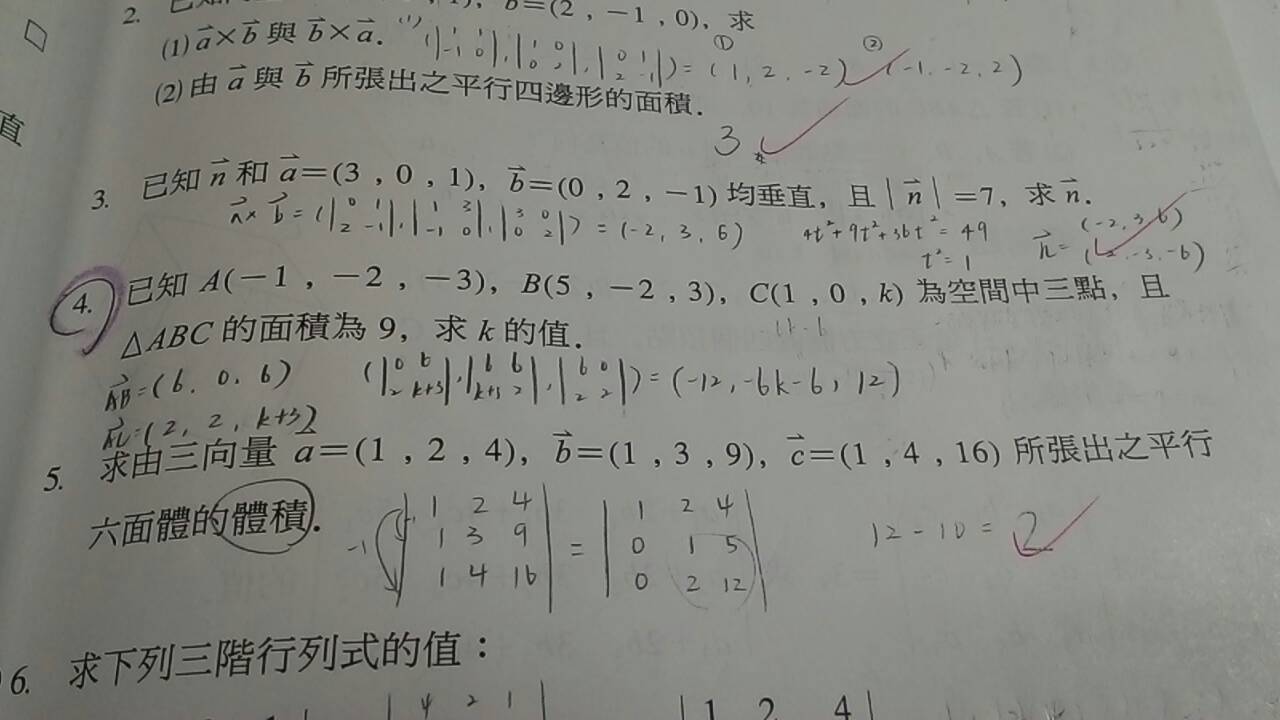 2.
b=(2,-1,0),求
(1) a×b 與 b×a. (1) (|1 1; -1 0|, |1 0; 0 2|, |0 1; 2 -1|) = (1, 2, -2) (-1, -2, 2)
① ②
(2) 由 a 與 b 所張出之平行四邊形的面積.
3
直
3. 已知 n 和 a=(3,0,1),b=(0,2,-1) 均垂直,且 |n|=7,求 n.
a× b = (|0 1; 2 -1|, |1 3; -1 0|, |3 0; 0 2|) = (-2, 3, 6) 4t²+9t²+36t² = 49
t² = 1
n = (-2, 3, 6)
(2, -3, -6)
4. 已知 A(-1,-2,-3),B(5,-2,3),C(1,0,k) 為空間中三點,且
△ABC 的面積為 9,求 k 的值.
AB=(6, 0, 6) (|0 6; 2 k+3|, |6 6; k+3 2|, |6 0; 2 2|) = (-12, -6k-6, 12)
AC=(2, 2, k+3)
5. 求由三向量 a=(1,2,4),b=(1,3,9),c=(1,4,16) 所張出之平行
六面體的體積.
-1 |1 2 4; 1 3 9; 1 4 16| = |1 2 4; 0 1 5; 0 2 12| 12-10=2
6. 求下列三階行列式的值:
4 2 1
1 2 4